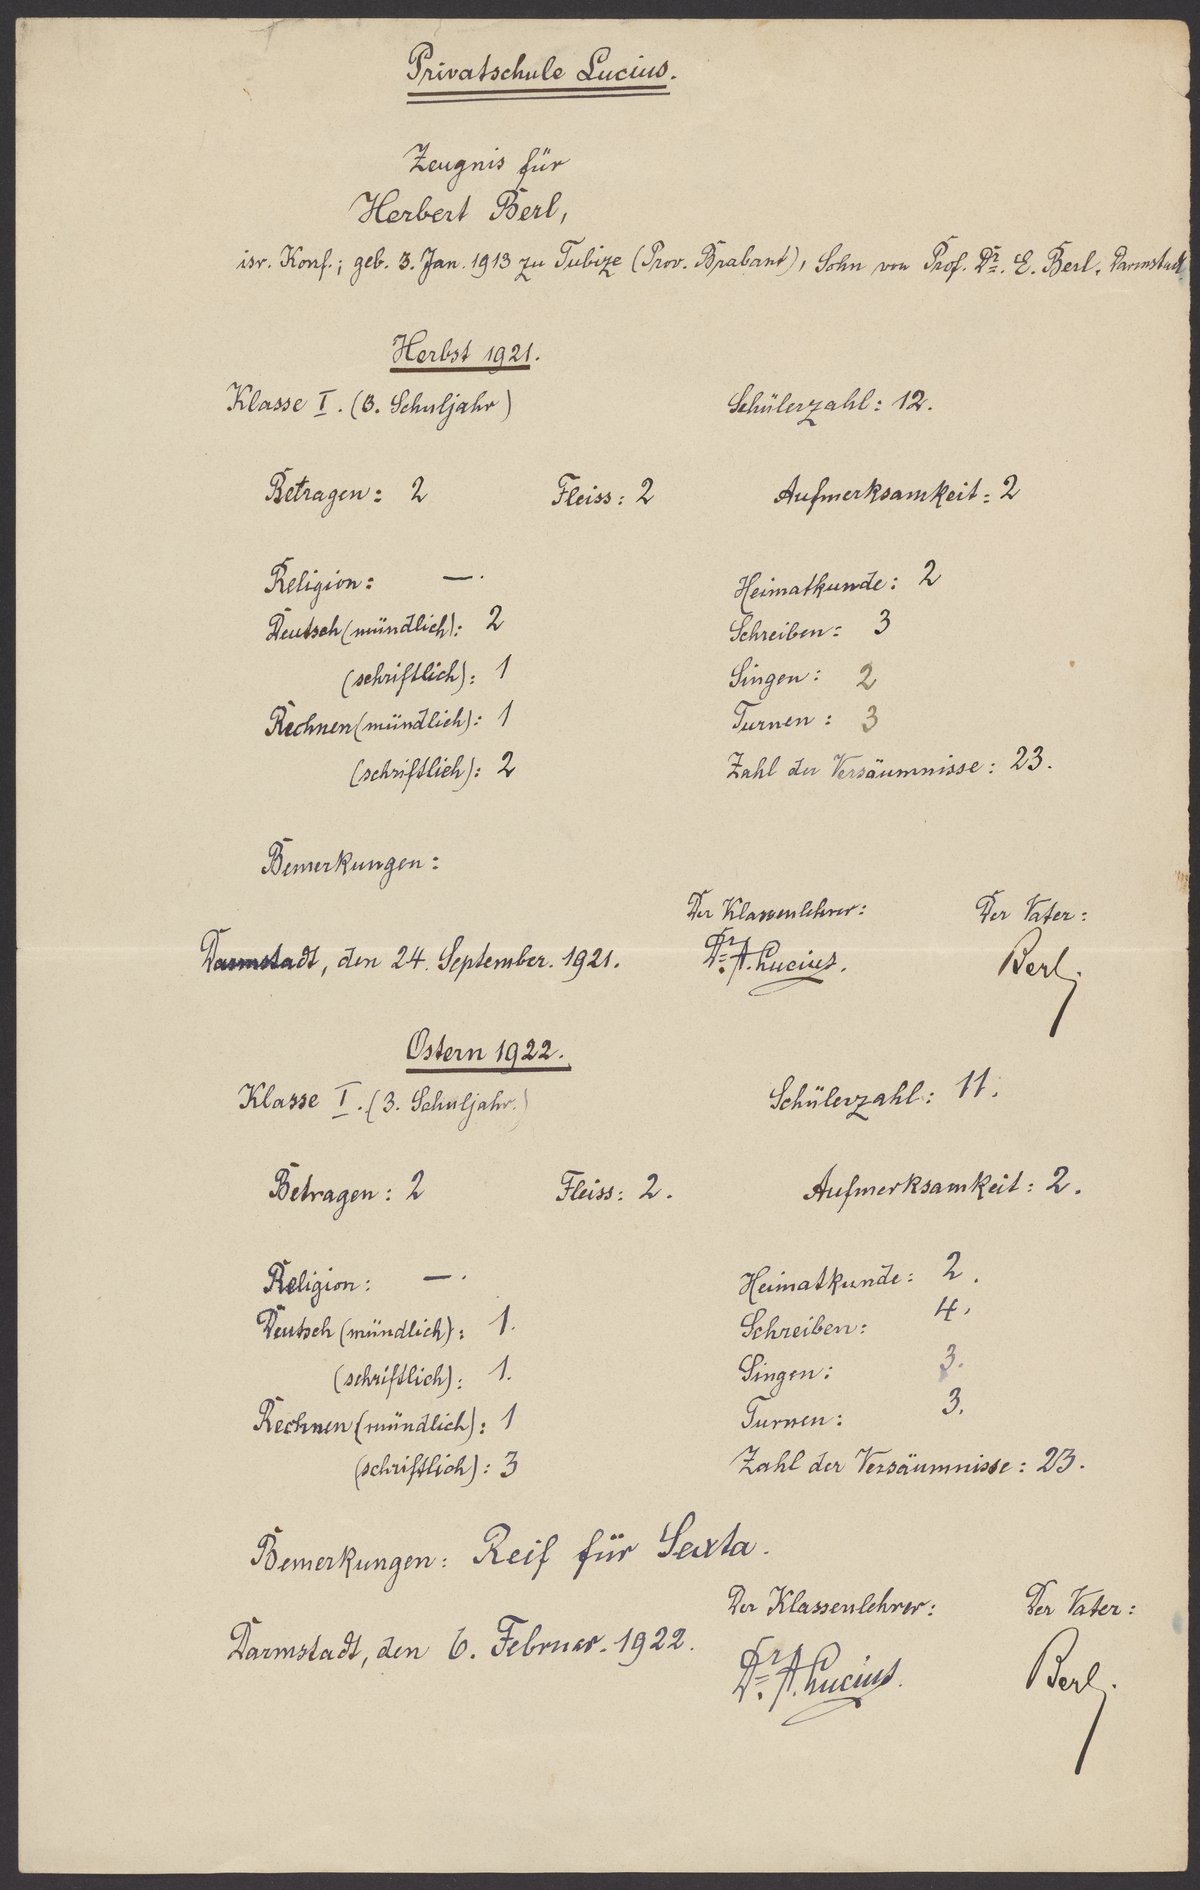 Privatschule Lucius.
Zeugnis für
Herbert Berl,
isr. Konf.; geb. 3. Jan. 1913 zu Tubize (Prov. Brabant), Sohn von Prof. Dr. E. Berl, Darmstadt
Herbst 1921.
Klasse I. (3. Schuljahr) Schülerzahl: 12.
Betragen: 2 Fleiss: 2 Aufmerksamkeit: 2
Religion: —. Heimatkunde: 2
Deutsch (mündlich): 2 Schreiben: 3
(schriftlich): 1 Singen: 2
Rechnen (mündlich): 1 Turnen: 3
(schriftlich): 2 Zahl der Versäumnisse: 23.
Bemerkungen:
Der Klassenlehrer: Der Vater:
Darmstadt, den 24. September. 1921. Dr. A. Lucius. Berl.
Ostern 1922.
Klasse I. (3. Schuljahr.) Schülerzahl: 11.
Betragen: 2 Fleiss: 2. Aufmerksamkeit: 2.
Religion: —. Heimatkunde: 2.
Deutsch (mündlich): 1. Schreiben: 4.
(schriftlich): 1. Singen: 3.
Rechnen (mündlich): 1 Turnen: 3.
(schriftlich): 3 Zahl der Versäumnisse: 23.
Bemerkungen: Reif für Sexta.
Der Klassenlehrer: Der Vater:
Darmstadt, den 6. Februar. 1922. Dr. A. Lucius. Berl.